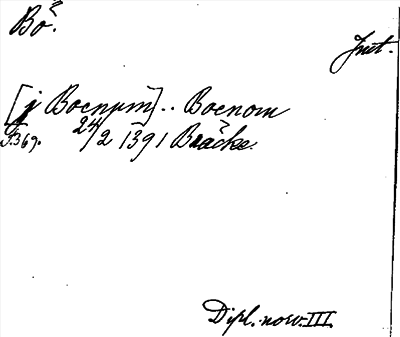 Bö.
Jmt.
[j Boenum].. Boenom
S.369. 24/2 1391 Bräcke.
Dipl. norv. III.